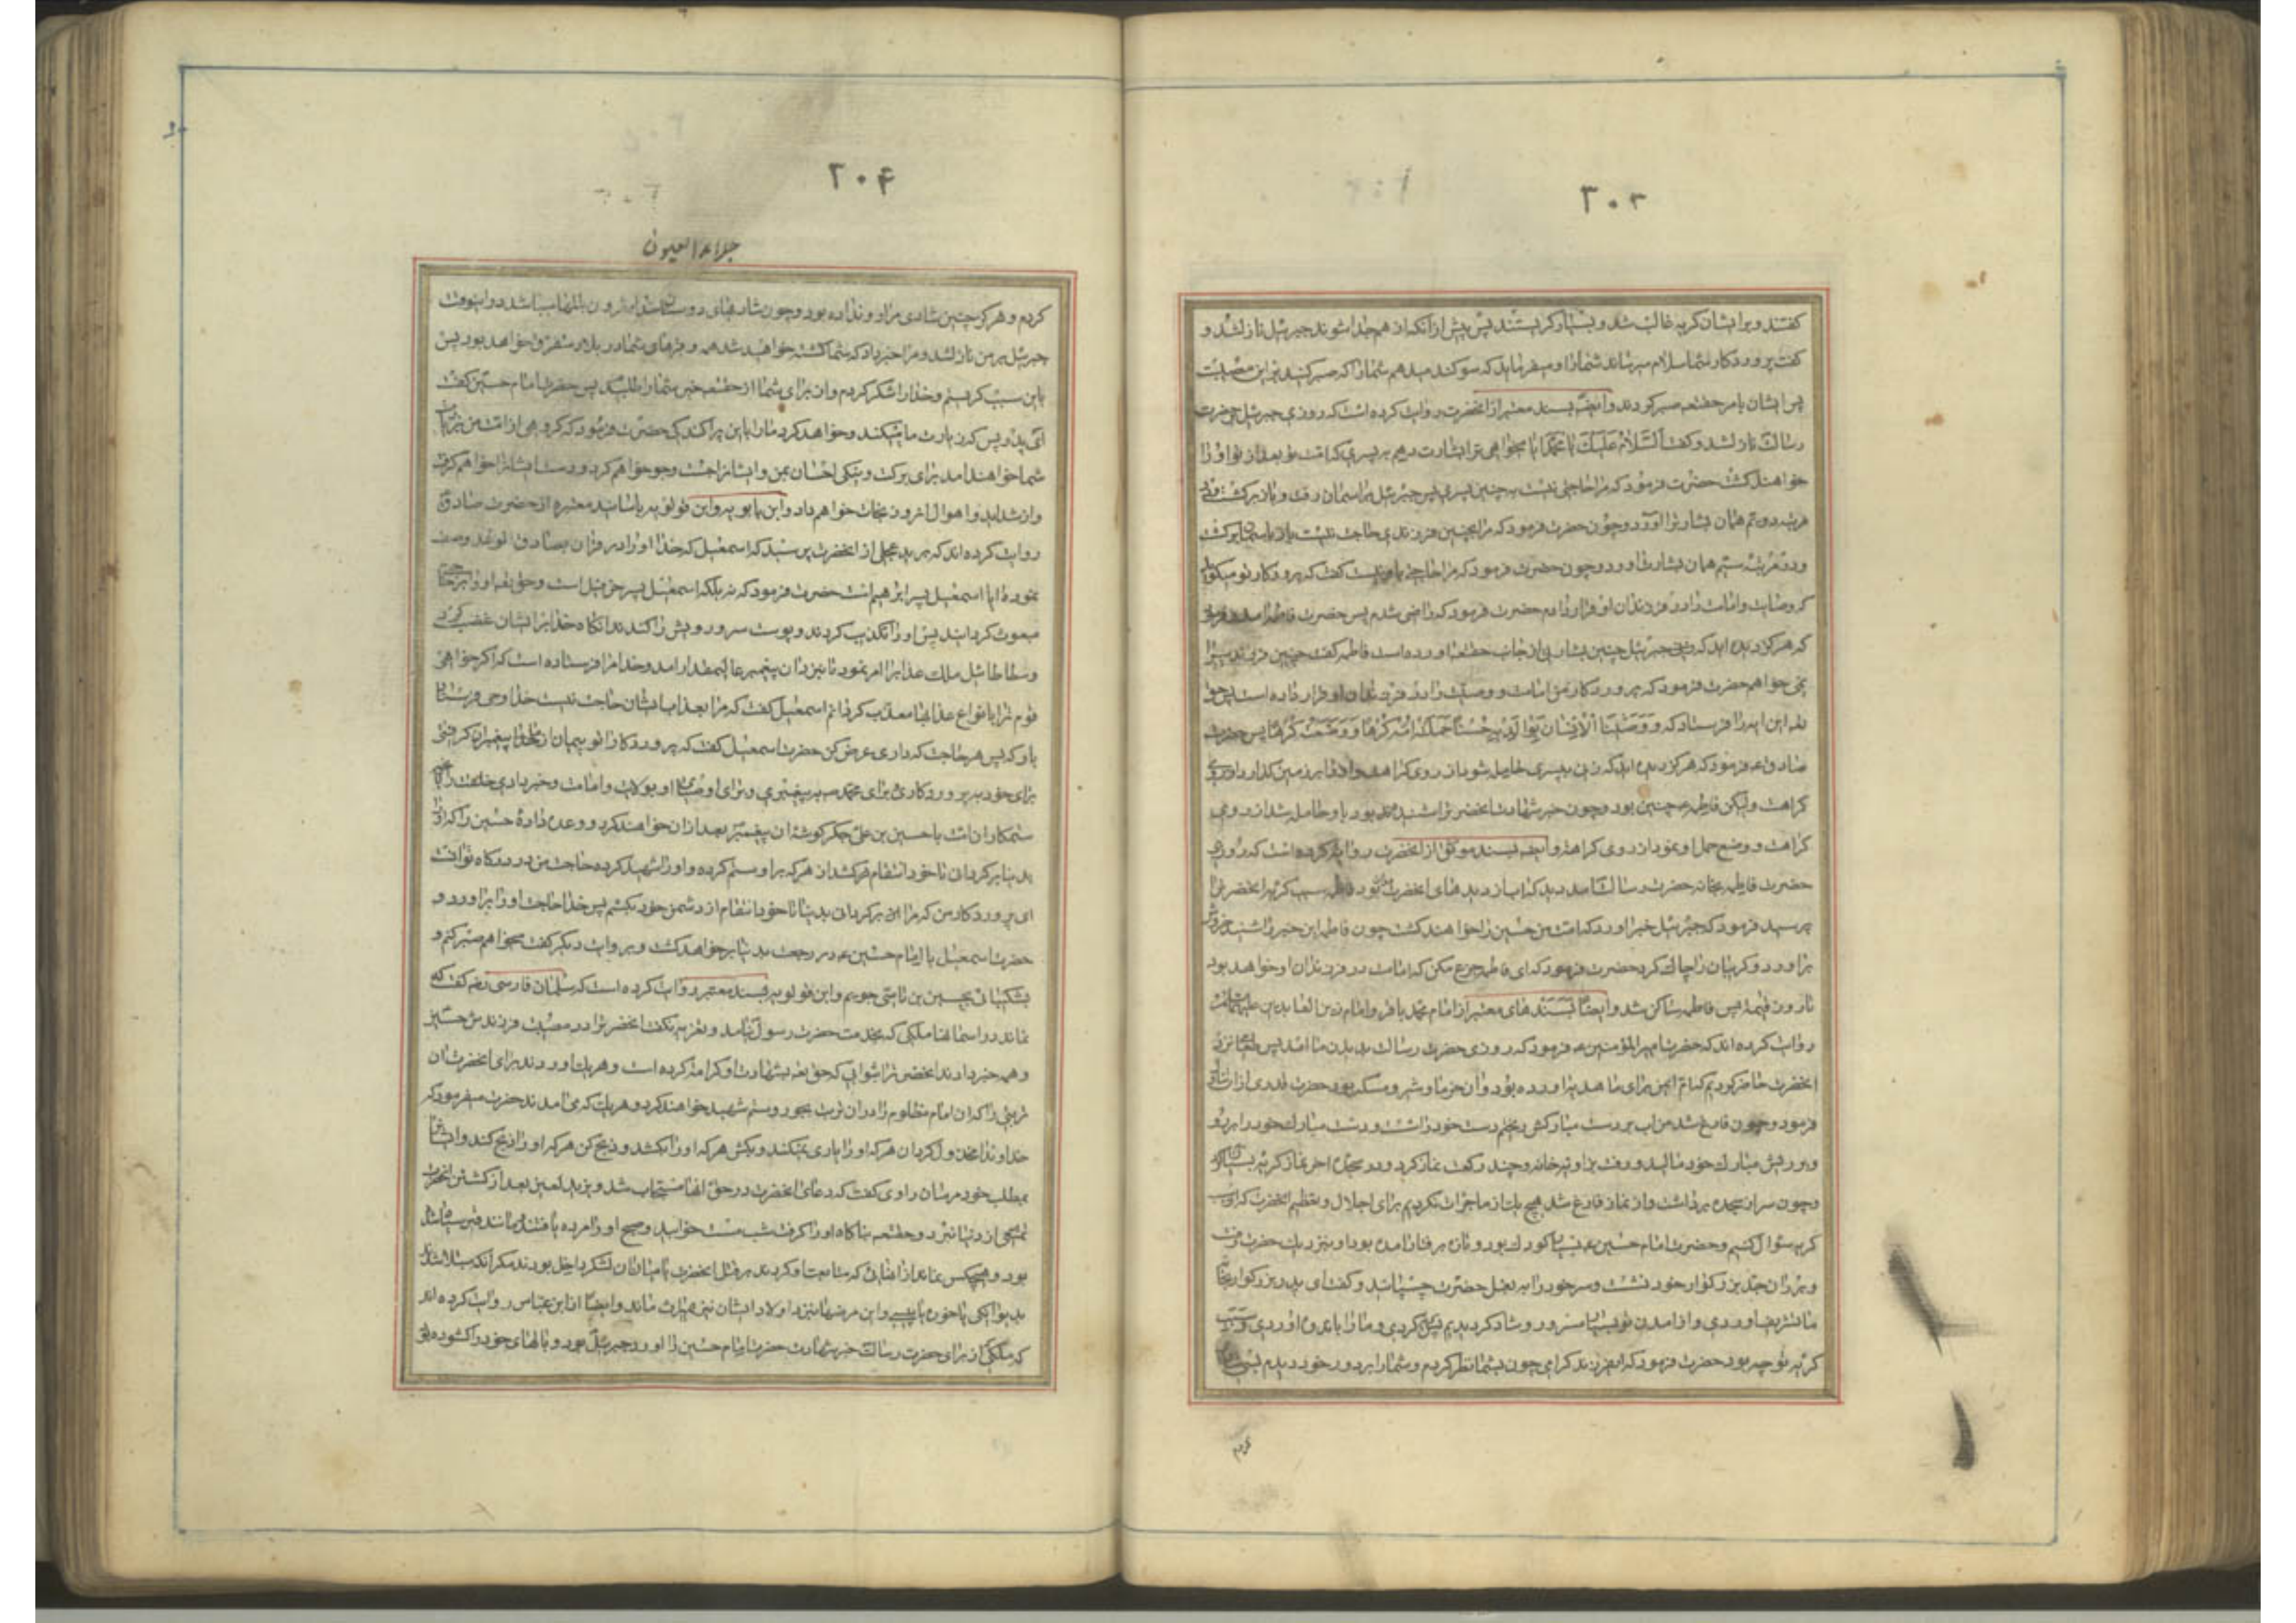 ۲۰۳
کفتند و برایشان کریه غالب شد و بسیار کریستند پس پیش از آنکه از هم جدا شوند جبرئیل نازل شد و
کفت پروردکار شما سلام میرساند شما را و میفرماید که سوکند میدهم شما را که صبر کنید بر این مصیبت
پس ایشان بامر حقتعم صبر کردند و ایضا بسند معتبر از انحضرت روایت کرده است که روزی جبرئیل بر حضرت
رسالت نازل شد و کفت السَّلامُ عَلَیکَ یا مُحمّد ایا میخواهی ترا بشارت دهم به پسری که امت تو بعد از تو او را
خواهند کشت حضرت فرمود که مرا حاجتی نیست به چنین پسری پس جبرئیل بر اسمان رفت و باز برکشت و در
مرتبه دویم همان بشارترا اورد و چون حضرت فرمود که مرا بچنین فرزندی حاجت نیست باز باسمان برکشت
و در مرتبه سیم همان بشارت اورد و چون حضرت فرمود که مرا حاجتی باو نیست کفت که پروردکار تو میکوید
که وصایت و امامت را در فرزندان او قرار دادم حضرت فرمود که راضی شدم پس حضرت فاطمه
که هرکز دیده اید که جبرئیل چنین بشارتی از جانب حقتعم اورده است فاطمه کفت چنین فرزندیرا
نمی خواهم حضرت فرمود که پروردکار من امامت و وصیت را در فرزندان او قرار داده است پس حق
تعم این ایه را فرستاد که وَ وَصَّیْنَا الْاِنْسانَ بِوالِدَیْهِ حُسْنًا حَمَلَتْهُ اُمُّهُ کُرْهًا وَ وَضَعَتْهُ کُرْهًا پس حضرت
صادق ع فرمود که هرکز دیده اید که زنی بپسری حامله شود از روی کراهت و او را بر زمین کذارد از روی
کراهت ولیکن فاطمه ع چنین بود و چون خبر شهادت انحضرترا شنیده بود باو حامله شد از روی
کراهت و وضع حمل او نمود از روی کراهت و ایضا بسند موثق از انحضرت روایت کرده است که روزی
حضرت فاطمه بخانه حضرت رسالت امد دید که اب از دیدهای انحضرت میریزد فاطمه سبب کریه انحضرترا
پرسید فرمود که جبرئیل خبر اورد که امت من حسین را خواهند کشت چون فاطمه این خبر را شنید خروش
براورد و کریبان را چاک کرد حضرت فرمود که ای فاطمه جزع مکن که امامت در فرزندان او خواهد بود
تا روز قیمة پس فاطمه ساکن شد و ایضا بسندهای معتبر از امام محمد باقر و امام زین العابدین علیهما السلام
روایت کرده اند که حضرت امیرالمؤمنین ع فرمود که روزی حضرت رسالت بدیدن ما امد پس طعامی نزد
انحضرت حاضر کردیم که ام ایمن برای ما هدیه اورده بود و ان خرما و شیر و مسکه بود حضرت قدری از ان تناول
فرمود و چون فارغ شد من اب بر دست مبارکش ریختم دست خود را شست و دست مبارک خود را بر رو
و بر ریش مبارک خود مالید و رفت بزاویه خانه و چند رکعت نماز کرد و در سجدهٔ اخر نماز کریه بسیار کرد
و چون سر از سجده برداشت و از نماز فارغ شد هیچ یک از ما جرات نکردیم برای اجلال و تعظیم انحضرت که از سبب
کریه سؤال کنیم و حضرت امام حسین ع بسیار کودک بود و تازه برفتار امده بود او بنزدیک حضرت رفت
و بر ران جد بزرکوار خود نشست و سر خود را به بغل حضرت چسپانید و کفت ای پدر بزرکوار بخانهٔ
ما تشریف اوردی و از امدن تو بسیار مسرور و شاد کردیدیم پس کریه کردی و ما را باندوه اوردی سبب
کریه تو چه بود حضرت فرمود که ای فرزند کرامی چون بشما نظر کردم و شما را بر دور خود دیدم بسیار شادی
کردم
۲۰۴
جلاء العیون
کردم و هرکز چنین شادی مرا رو نداده بود و چون شادیهای دوستان خدا مقرون باندوه میباشد در اینوقت
جبرئیل بر من نازل شد و مرا خبر داد که شما کشته خواهید شد همه و قبرهای شما در بلاد متفرق خواهد بود پس
باین سبب کریستم و خدا را شکر کردم و از برای شما از حقتعم خیر شما را طلبیدم پس حضرت امام حسین کفت
ای پدر پس که زیارت ما میکند و خواهد کرد ما را باین پراکندکی حضرت فرمود که کروهی از امت من زیارت
شما خواهند امد برای برکت و نیکی احسان بمن و ایشانرا جست و جو خواهم کرد و دست ایشانرا خواهم کرفت
و از شداید و اهوال انروز نجات خواهم داد و ابن بابویه و ابن قولویه باسانید معتبره از حضرت صادق
روایت کرده اند که برید عجلی از انحضرت پرسید که اسمعیل که خدا او را در قران بصادق الوعد وصف
نموده ایا اسمعیل پسر ابراهیم است حضرت فرمود که نه بلکه اسمعیل پسر حزقیل است و حق تعم او را بر جمعی
مبعوث کردانید پس او را تکذیب کردند و پوست سر و رویش را کندند انکاه خدا بر ایشان غضب کرد
و سطاطائیل ملک عذابرا امر نمود تا بنزد ان پیغمبر عالیمقدار امد و خدا مرا فرستاده است که اکر خواهی
قوم ترا بانواع عذابها معذب کردانم اسمعیل کفت که مرا بعذاب ایشان حاجت نیست خدا وحی فرستاد
باو که پس هر حاجت که داری عرض کن حضرت اسمعیل کفت که پروردکارا تو پیمان از ما پیغمبران کرفتی
برای خود به پروردکاری و برای محمد ص به پیغمبری و برای اوصیای او بولایت و امامت و خبر دادی خلقت را بانچه
ستمکاران امت با حسین بن علی جکر کوشه ان پیغمبر بعد از ان خواهند کرد و وعده دادهٔ حسین را که او را
بدنیا برکردانی تا خود انتقام بکشد از هر که بر او ستم کرده و او را شهید کرده حاجت من در درکاه تو انست
ای پروردکار من که مرا نیز برکردانی بدنیا تا خود انتقام از دشمن خود بکشم پس خدا حاجت او را براورد و
حضرت اسمعیل با امام حسین ع در رجعت بدنیا برخواهد کشت و بروایت دیکر کفت میخواهم صبر کنم و
بشکیبائی بحسین بن علی تاسی جویم و ابن قولویه بسند معتبر روایت کرده است که سلمان فارسی رض کفت که
نماند در اسمانها ملکی که بخدمت حضرت رسول نیامد و تعزیه نکفت انحضرترا در مصیبت فرزندش حسین
و همه خبر دادند انحضرترا بثوابی که حق تعم بشهادت او کرامت کرده است و هر یک اوردند برای انحضرت ان
تربتی را که ان امام مظلوم را در ان تربت بجور و ستم شهید خواهند کرد و هر یک که می امدند حضرت میفرمود که
خداوندا مخذول کردان هر که او را یاری نمیکند و بکش هر که او را بکشد و ذبح کن هر که او را ذبح کند و ایشانرا
بمطلب خود مرسان راوی کفت که دعای انحضرت در حق انها مستجاب شد و یزید لعین بعد از کشتن انحضرت
تمتعی از دنیا نبرد و حقتعم بناکاه او را کرفت شب مست خوابید و صبح او را مرده یافتند مانند قیر سیاه شده
بود و هیچکس نماند از انهائی که متابعت او کردند بر قتل انحضرت یا میان ان لشکر داخل بودند مکر انکه مبتلا شدند
بدیوانکی یا خوره یا پیسی و این مرضها بنزد اولاد ایشان نیز بمیراث ماند و ایضا از ابن عباس روایت کرده اند
که ملکی از برای حضرت رسالت خبر شهادت حضرت امام حسین را اورد جبرئیل بود و بالهای خود را کشوده